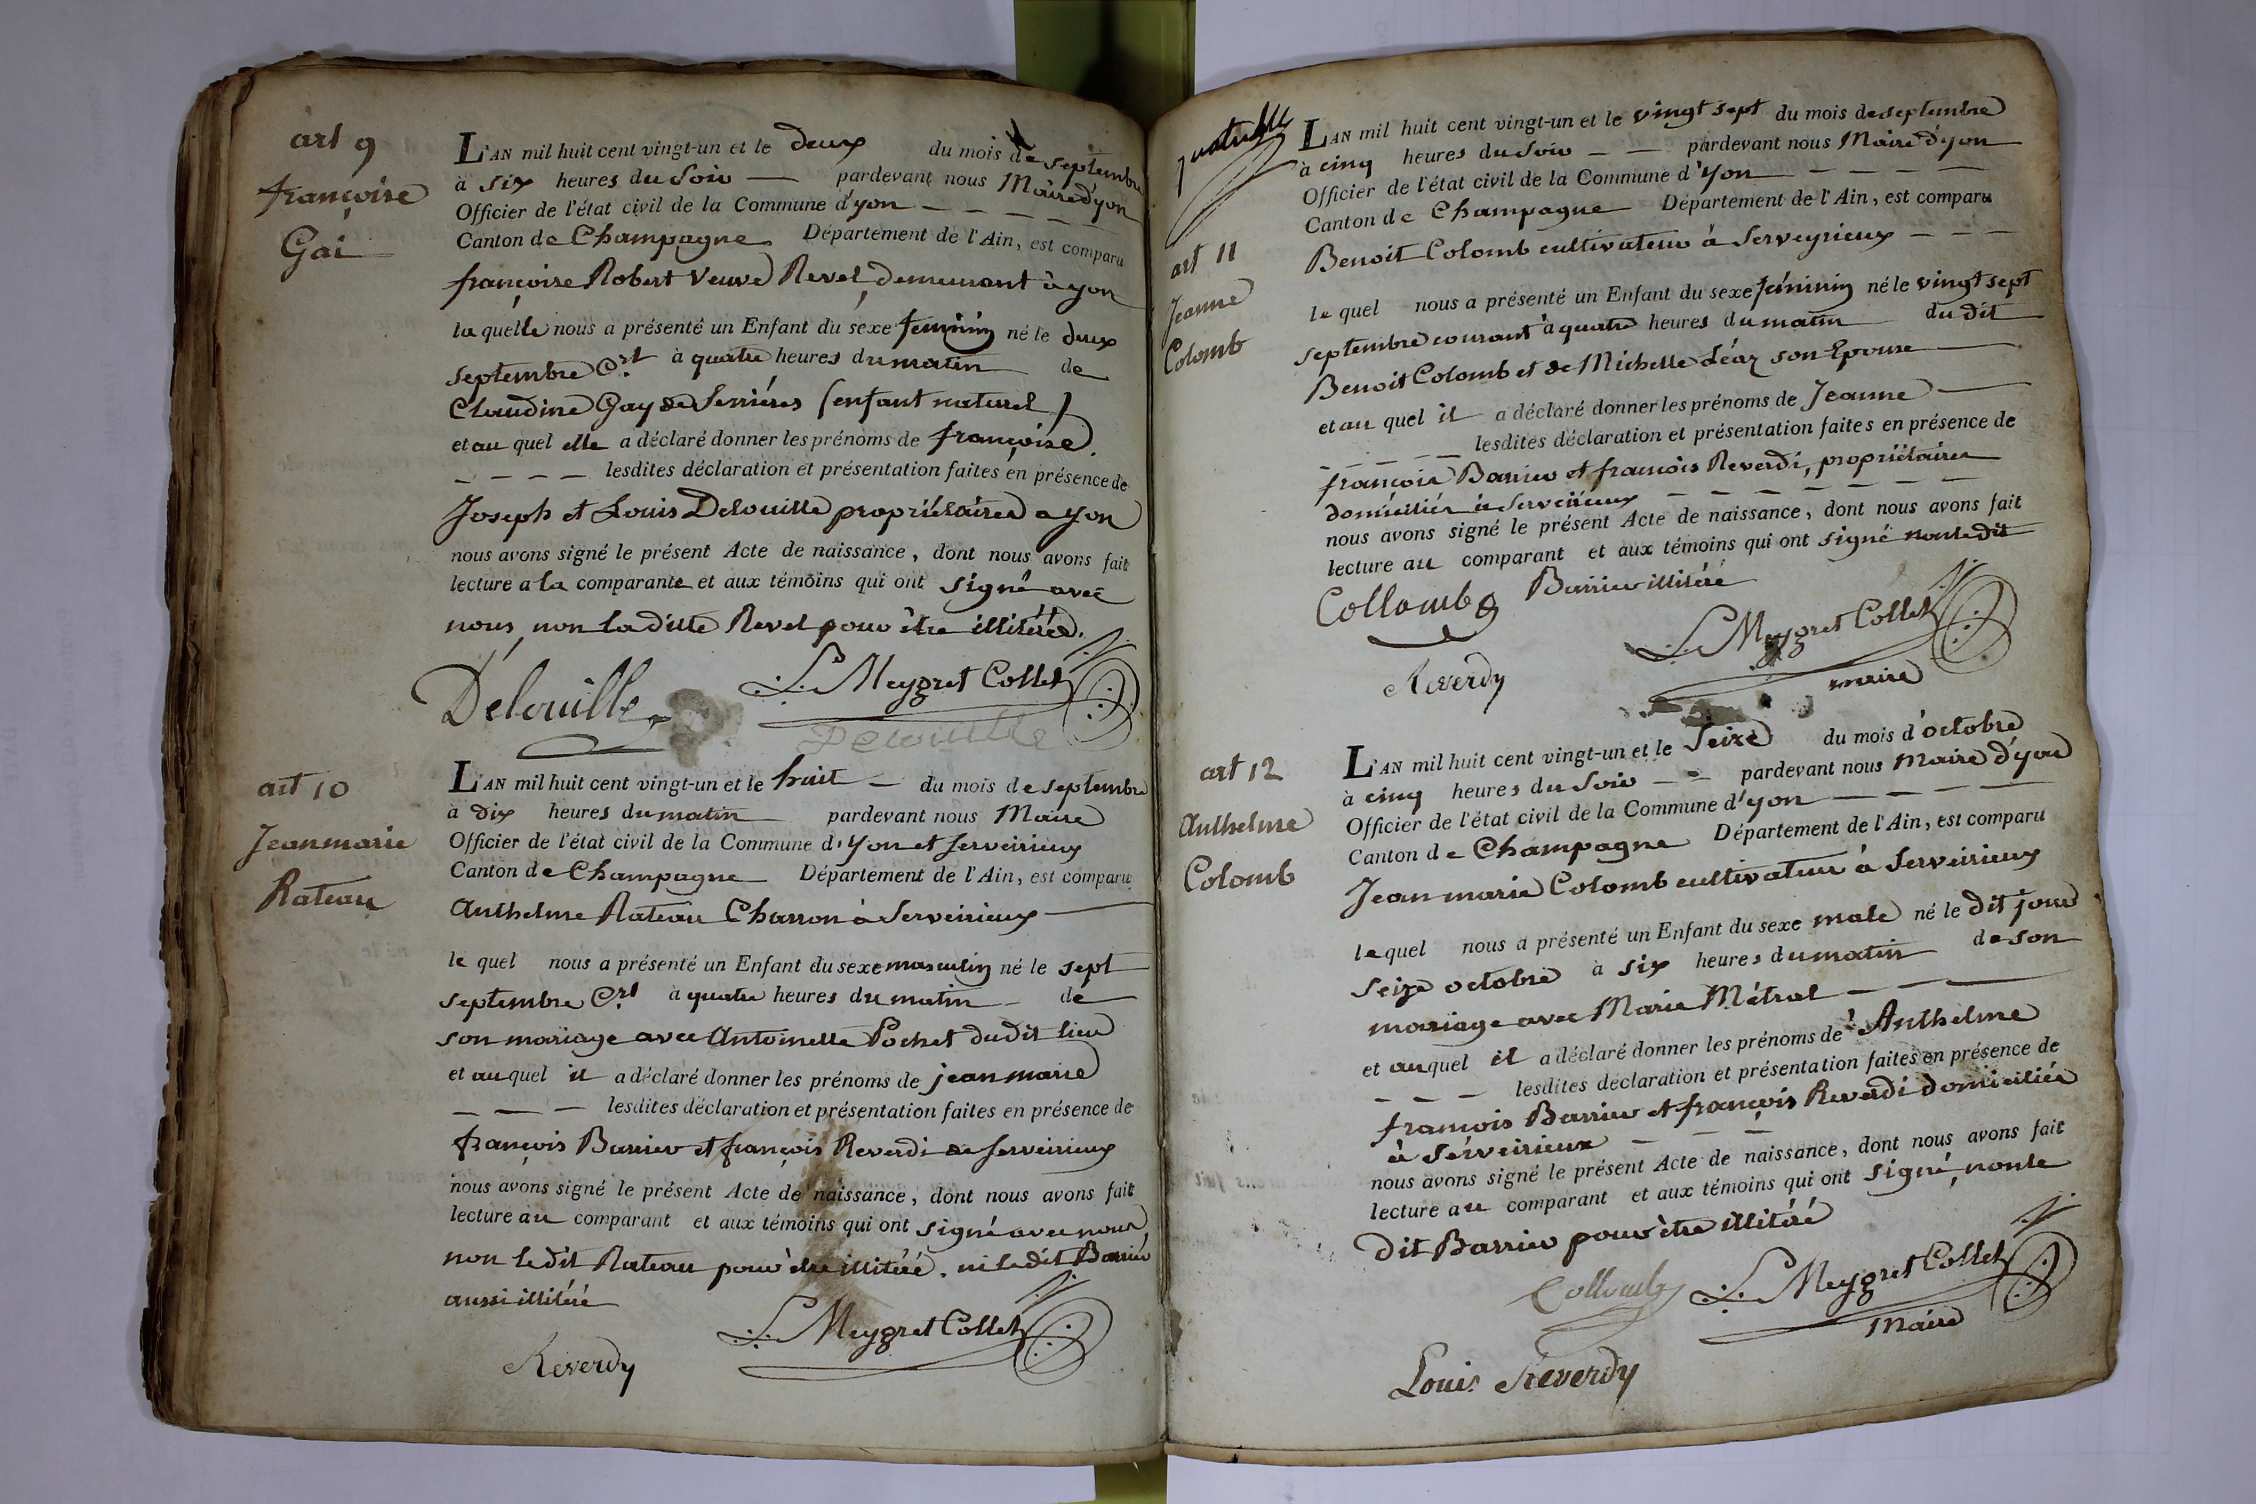 art 9
françoise
Gai
L'AN mil huit cent vingt-un et le deux du mois de septembre
à six heures du Soir — pardevant nous Maire d'yon
Officier de l'état civil de la Commune d'yon — — — —
Canton de Champagne Département de l'Ain, est comparu
françoise Robert Veuve Revel, demeurant à yon
la quelle nous a présenté un Enfant du sexe feminin né le deux
septembre Crt à quatre heures du matin de
Claudine Gay de Serriéres (enfant naturel)
et au quel elle a déclaré donner les prénoms de françoise.
— — — — lesdites déclaration et présentation faites en présence de
Joseph et Louis Delouille propriétaires a yon
nous avons signé le présent Acte de naissance, dont nous avons fait
lecture a la comparante et aux témoins qui ont signé avec
nous, non la ditte Revel pour être illitérée.
Delouille
L. Meygret Collet
Delouille
art 10
Jeanmarie
Rateau
L'AN mil huit cent vingt-un et le huit — du mois de septembre
à dix heures du matin pardevant nous Maire
Officier de l'état civil de la Commune d'Yon et Serveirieux
Canton de Champagne Département de l'Ain, est comparu
Anthelme Rateau Charron à Serveirieux —
le quel nous a présenté un Enfant du sexe masculin né le sept
septembre Crt à quatre heures du matin — de
son mariage avec Antoinette Pochet dudit lieu
et au quel il a déclaré donner les prénoms de jean marie
— — — lesdites déclaration et présentation faites en présence de
françois Barrier et françois Reverdi de Serveirieux
nous avons signé le présent Acte de naissance, dont nous avons fait
lecture au comparant et aux témoins qui ont signé avec nous
non le dit Rateau pour être illitéré. ni le dit Barrier
aussi illitéré
L. Meygret Collet
Reverdy
quatrième
art 11
Jeanne
Colomb
L'AN mil huit cent vingt-un et le vingt sept du mois de septembre
à cinq heures du Soir — — pardevant nous Maire d'yon
Officier de l'état civil de la Commune d'Yon — — — —
Canton de Champagne Département de l'Ain, est comparu
Benoit Colomb cultivateur à Serveyrieux — — —
le quel nous a présenté un Enfant du sexe féminin né le vingt sept
septembre courant à quatre heures du matin du dit
Benoit Colomb et de Michelle Léaz son Epouse —
et au quel il a déclaré donner les prénoms de Jeanne —
— — — — lesdites déclaration et présentation faites en présence de
françois Barrier et françois Reverdi, propriétaires
domiciliés à Serveirieux — — — — — — —
nous avons signé le présent Acte de naissance, dont nous avons fait
lecture au comparant et aux témoins qui ont signé non le dit
Collomb Barrier illitéré
L. Meygret Collet
Reverdy maire
art 12
Anthelme
Colomb
L'AN mil huit cent vingt-un et le Seize du mois d'octobre
à cinq heures du Soir — — pardevant nous Maire d'yon
Officier de l'état civil de la Commune d'yon — — — —
Canton de Champagne Département de l'Ain, est comparu
Jean marie Colomb cultivateur à Serveirieux
le quel nous a présenté un Enfant du sexe male né le dit jour
seize octobre à six heures du matin de son
mariage avec Marie Métral — — —
et auquel il a déclaré donner les prénoms de Anthelme
— — — lesdites déclaration et présentation faites en présence de
françois Barrier et françois Reverdi domiciliés
à Serveirieux — — —
nous avons signé le présent Acte de naissance, dont nous avons fait
lecture au comparant et aux témoins qui ont signé, non le
dit Barrier pour être illitéré
Collomb L. Meygret Collet
Maire
Louis Reverdy